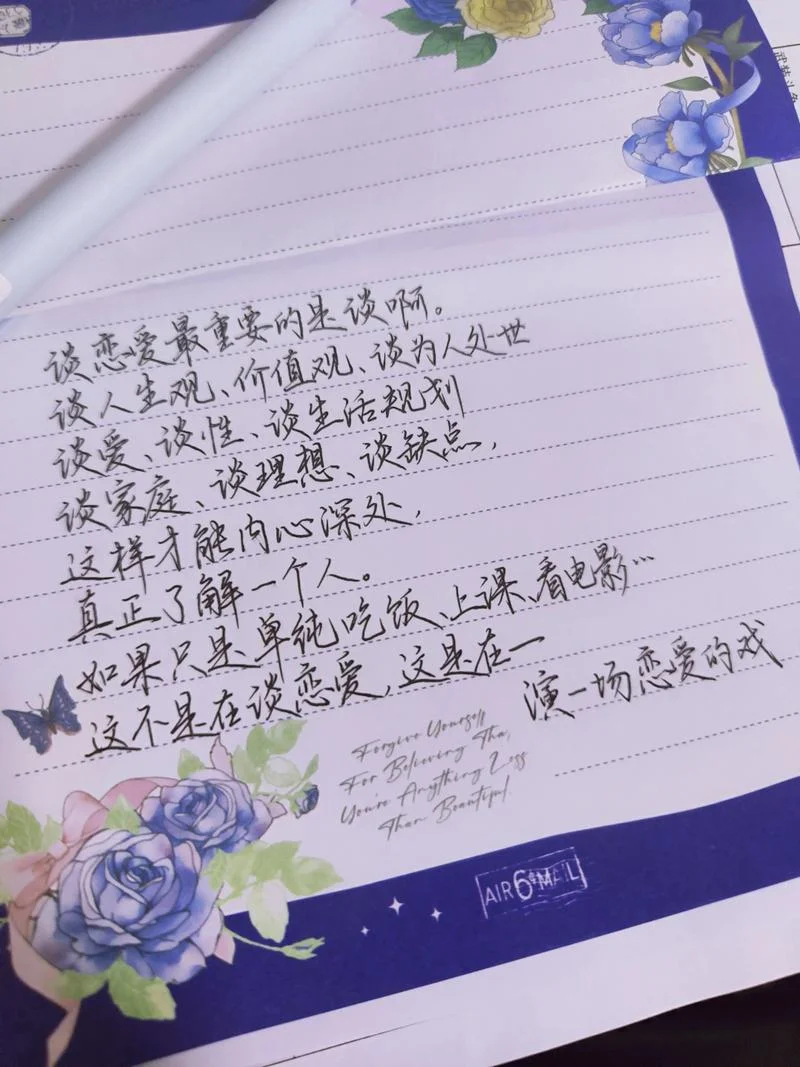 谈恋爱最重要的是谈啊。
谈人生观、价值观、谈为人处世
谈爱、谈性、谈生活规划
谈家庭、谈理想、谈缺点,
这样才能内心深处,
真正了解一个人。
如果只是单纯吃饭、上课、看电影…
这不是在谈恋爱,这是在一
演一场恋爱的戏
Forgive Yourself
For Believing Tha,
You're Anything Less
Than Beautiful.
AIR MAIL